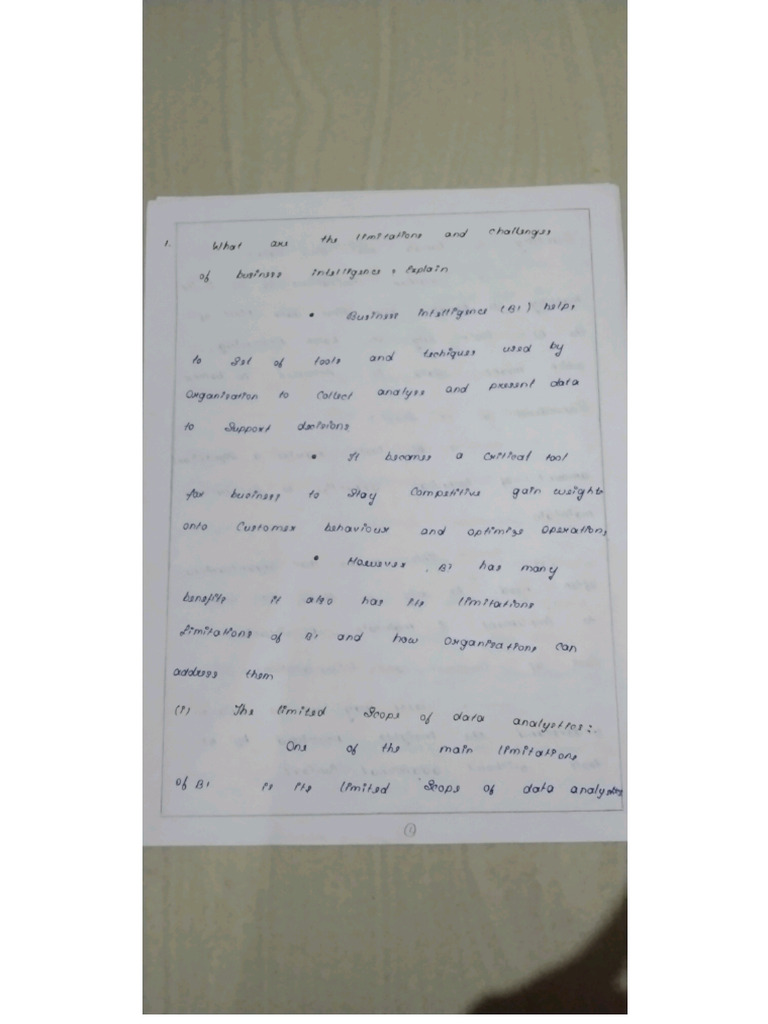 1. What are the limitations and challenges
of business intelligence, Explain
• Business Intelligence (BI) helps
to Set of tools and techiques used by
Organisation to Collect analyse and present data
to Support decisions
• It becomes a Critical tool
for business to Stay Competitive gain weights
onto Customer behaviour and optimize operations
• However, BI has many
benefits it also has its limitations
limitations of BI and how Organisations Can
address them
(i) The limited Scope of data analystics:-
One of the main limitations
of BI is its limited Scope of data